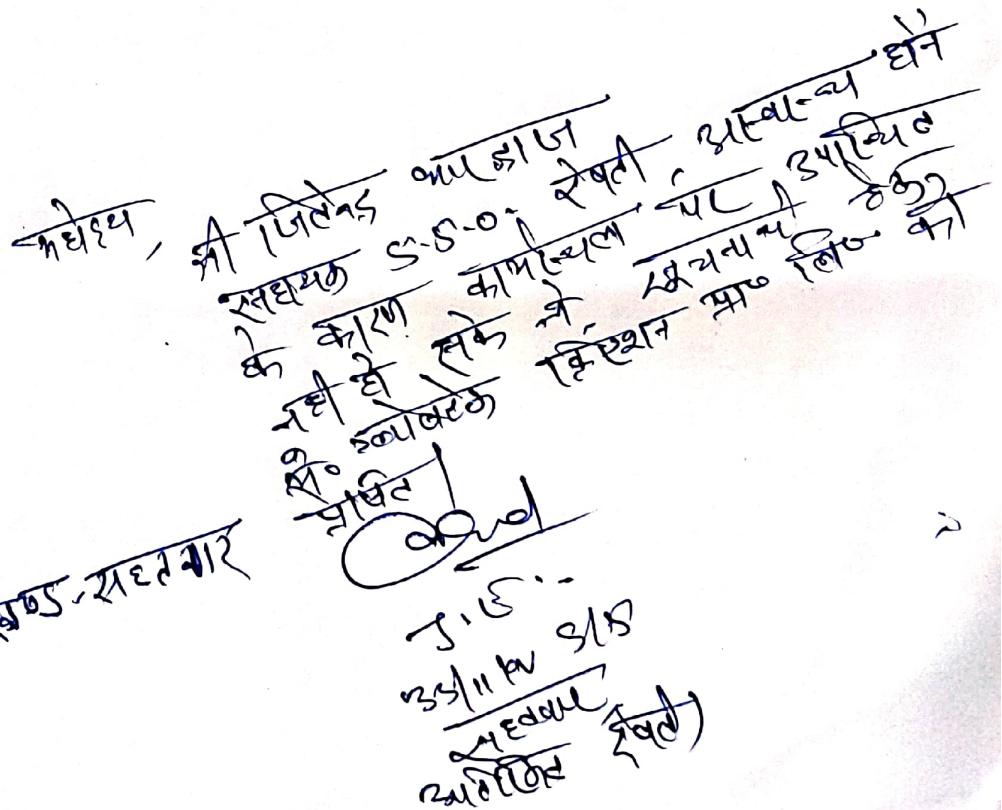 महोदय,
श्री जितेन्द्र भारद्वाज
सहायक S.S.O. रेवती अस्वास्थ्य होने
के कारण कार्यस्थल पर उपस्थित
नही हो सके थे। सूचनार्थ हेतु
मे० क्रिएशन प्रा० लि० को
प्रेषित।
खण्ड-सहतवार
J.E.
33/11 KV S/S
सहतवार
रेवती)